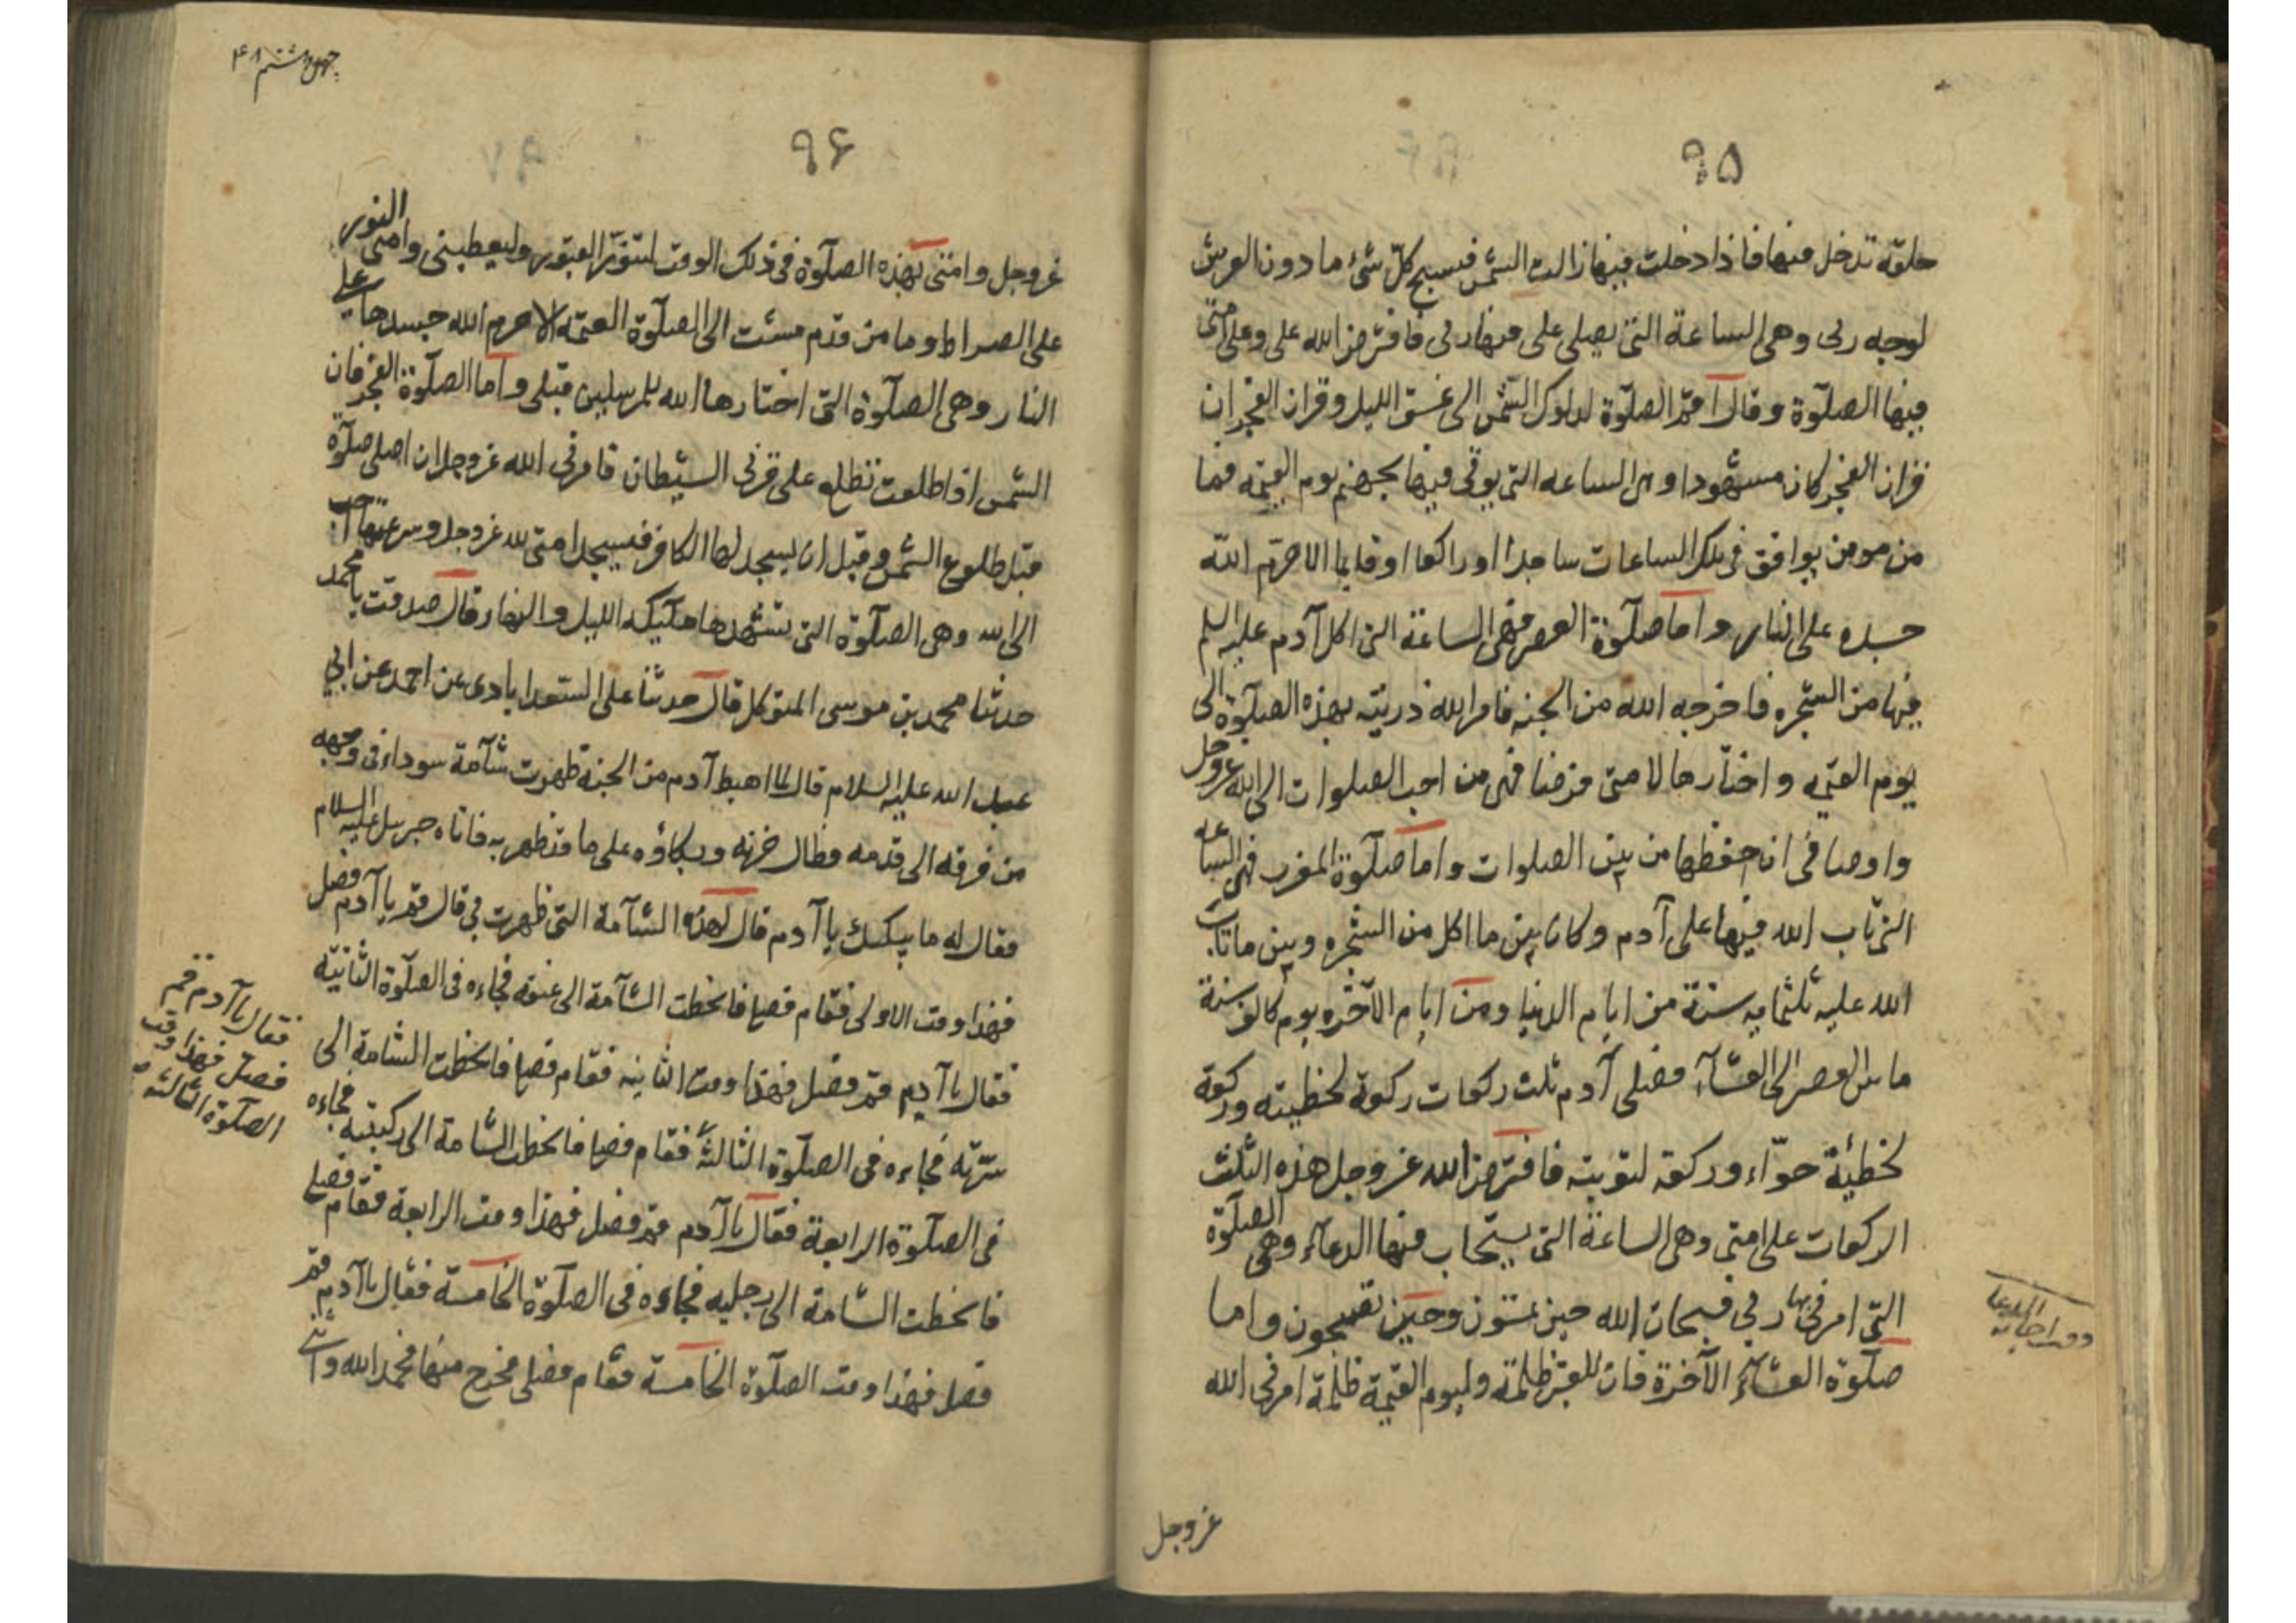 ٩٥
حلقة تدخل فيها فاذا دخلت فيها زالت الشمس فيسبح كلّ شئ ما دون العرش
لوجه ربى وهى الساعة التى يصلى على فيها ربى فافترض الله على وعلى امتى
فيها الصلوة وقال اقم الصلوة لدلوك الشمس الى غسق الليل وقران الفجر ان
قران الفجر كان مشهودا وهى الساعه التى يوتى فيها بجهنم يوم القيمه فما
من مومن يوافق فى تلك الساعات ساجدا او راكعا او قايما الا حرّم الله
جسده على النار واما صلوة العصر فهى الساعة التى اكل آدم عليه السلم
فيها من الشجره فاخرجه الله من الجنه فامر الله ذريته بهذه الصلوة الى
يوم القيمه واختارها لامتى فرضا فهى من احب الصلوات الى الله عزوجل
واوصانى ان احفظها من بين الصلوات واما صلوة المغرب فهى الساعه
التى تاب الله فيها على آدم وكان بين ما اكل من الشجره وبين ما تاب
الله عليه ثلثمايه سنة من ايام الدنيا ومن ايام الآخره يوم كالف سنة
ما بين العصر الى العشآء فصلى آدم ثلث ركعات ركعة لخطيئته وركعة
لخطيئة حوّاء وركعة لتوبته فافترض الله عزوجل هذه الثلث
الركعات على امتى وهى الساعة التى يستجاب فيها الدعآء وهى الصلوة
التى امرنى بها ربى فسبحان الله حين تمسون وحين تصبحون واما
صلوة العشآء الآخرة فان للقبر ظلمة وليوم القيمة ظلمة امرنى الله
وقت اجابه الدعا
عزوجل
چهل وهشتم ۴۸
٩۶
عزوجل وامتى بهذه الصلوة فى ذلك الوقت لتنوّر القبور وليعطينى وامتى النور
على الصراط وما من قدم مشت الى الصلوة العتمه الا حرم الله جسدها على
النار وهى الصلوة التى اختارها الله للمرسلين قبلى واما الصلوة الفجر فان
الشمس اذا طلعت تطلع على قرنى الشيطان فامرنى الله عزوجل ان اصلى صلوة
قبل طلوع الشمس وقبل ان يسجد لها الكافر فيسجد امتى لله عزوجل وسرعتها احب
الى الله وهى الصلوة التى تشهدها ملئيكه الليل والنهار قال صدقت يا محمد
حدثنا محمد بن موسى المتوكل قال حدثنا على السعدابادى عن احمد عن ابى
عبد الله عليه السلام قال لما اهبط آدم من الجنة ظهرت شآمة سوداء فى وجهه
من قرنه الى قدمه فطال حزنه وبكاؤه على ما قد ظهر به فاتاه جبرىيل عليه السلام
فقال له ما يبكيك يا آدم قال لهذه الشآمة التى ظهرت بى قال قم يا آدم فصل
فهذا وقت الاولى فقام فصلى فانحطت الشآمة الى عنقه فجاءه فى الصلوة الثانية
فقال يا آدم قم فصل فهذا وقت الثانيه فقام فصلى فانحطت الشامة الى
سرّته فجاءه فى الصلوة الثالثة فقام فصلى فانحطت الشامة الى ركبتيه فجاءه
فى الصلوة الرابعة فقال يا آدم قم فصل فهذا وقت الرابعة فقام فصلى
فانحطت الشامة الى رجليه فجاءه فى الصلوة الخامسة فقال يا آدم قم
فصل فهذا وقت الصلوة الخامسة فقام فصلى فخرج منها فحمد الله واثنى
فقال يا آدم قم
فصل فهذا وقت
الصلوة الثالثة